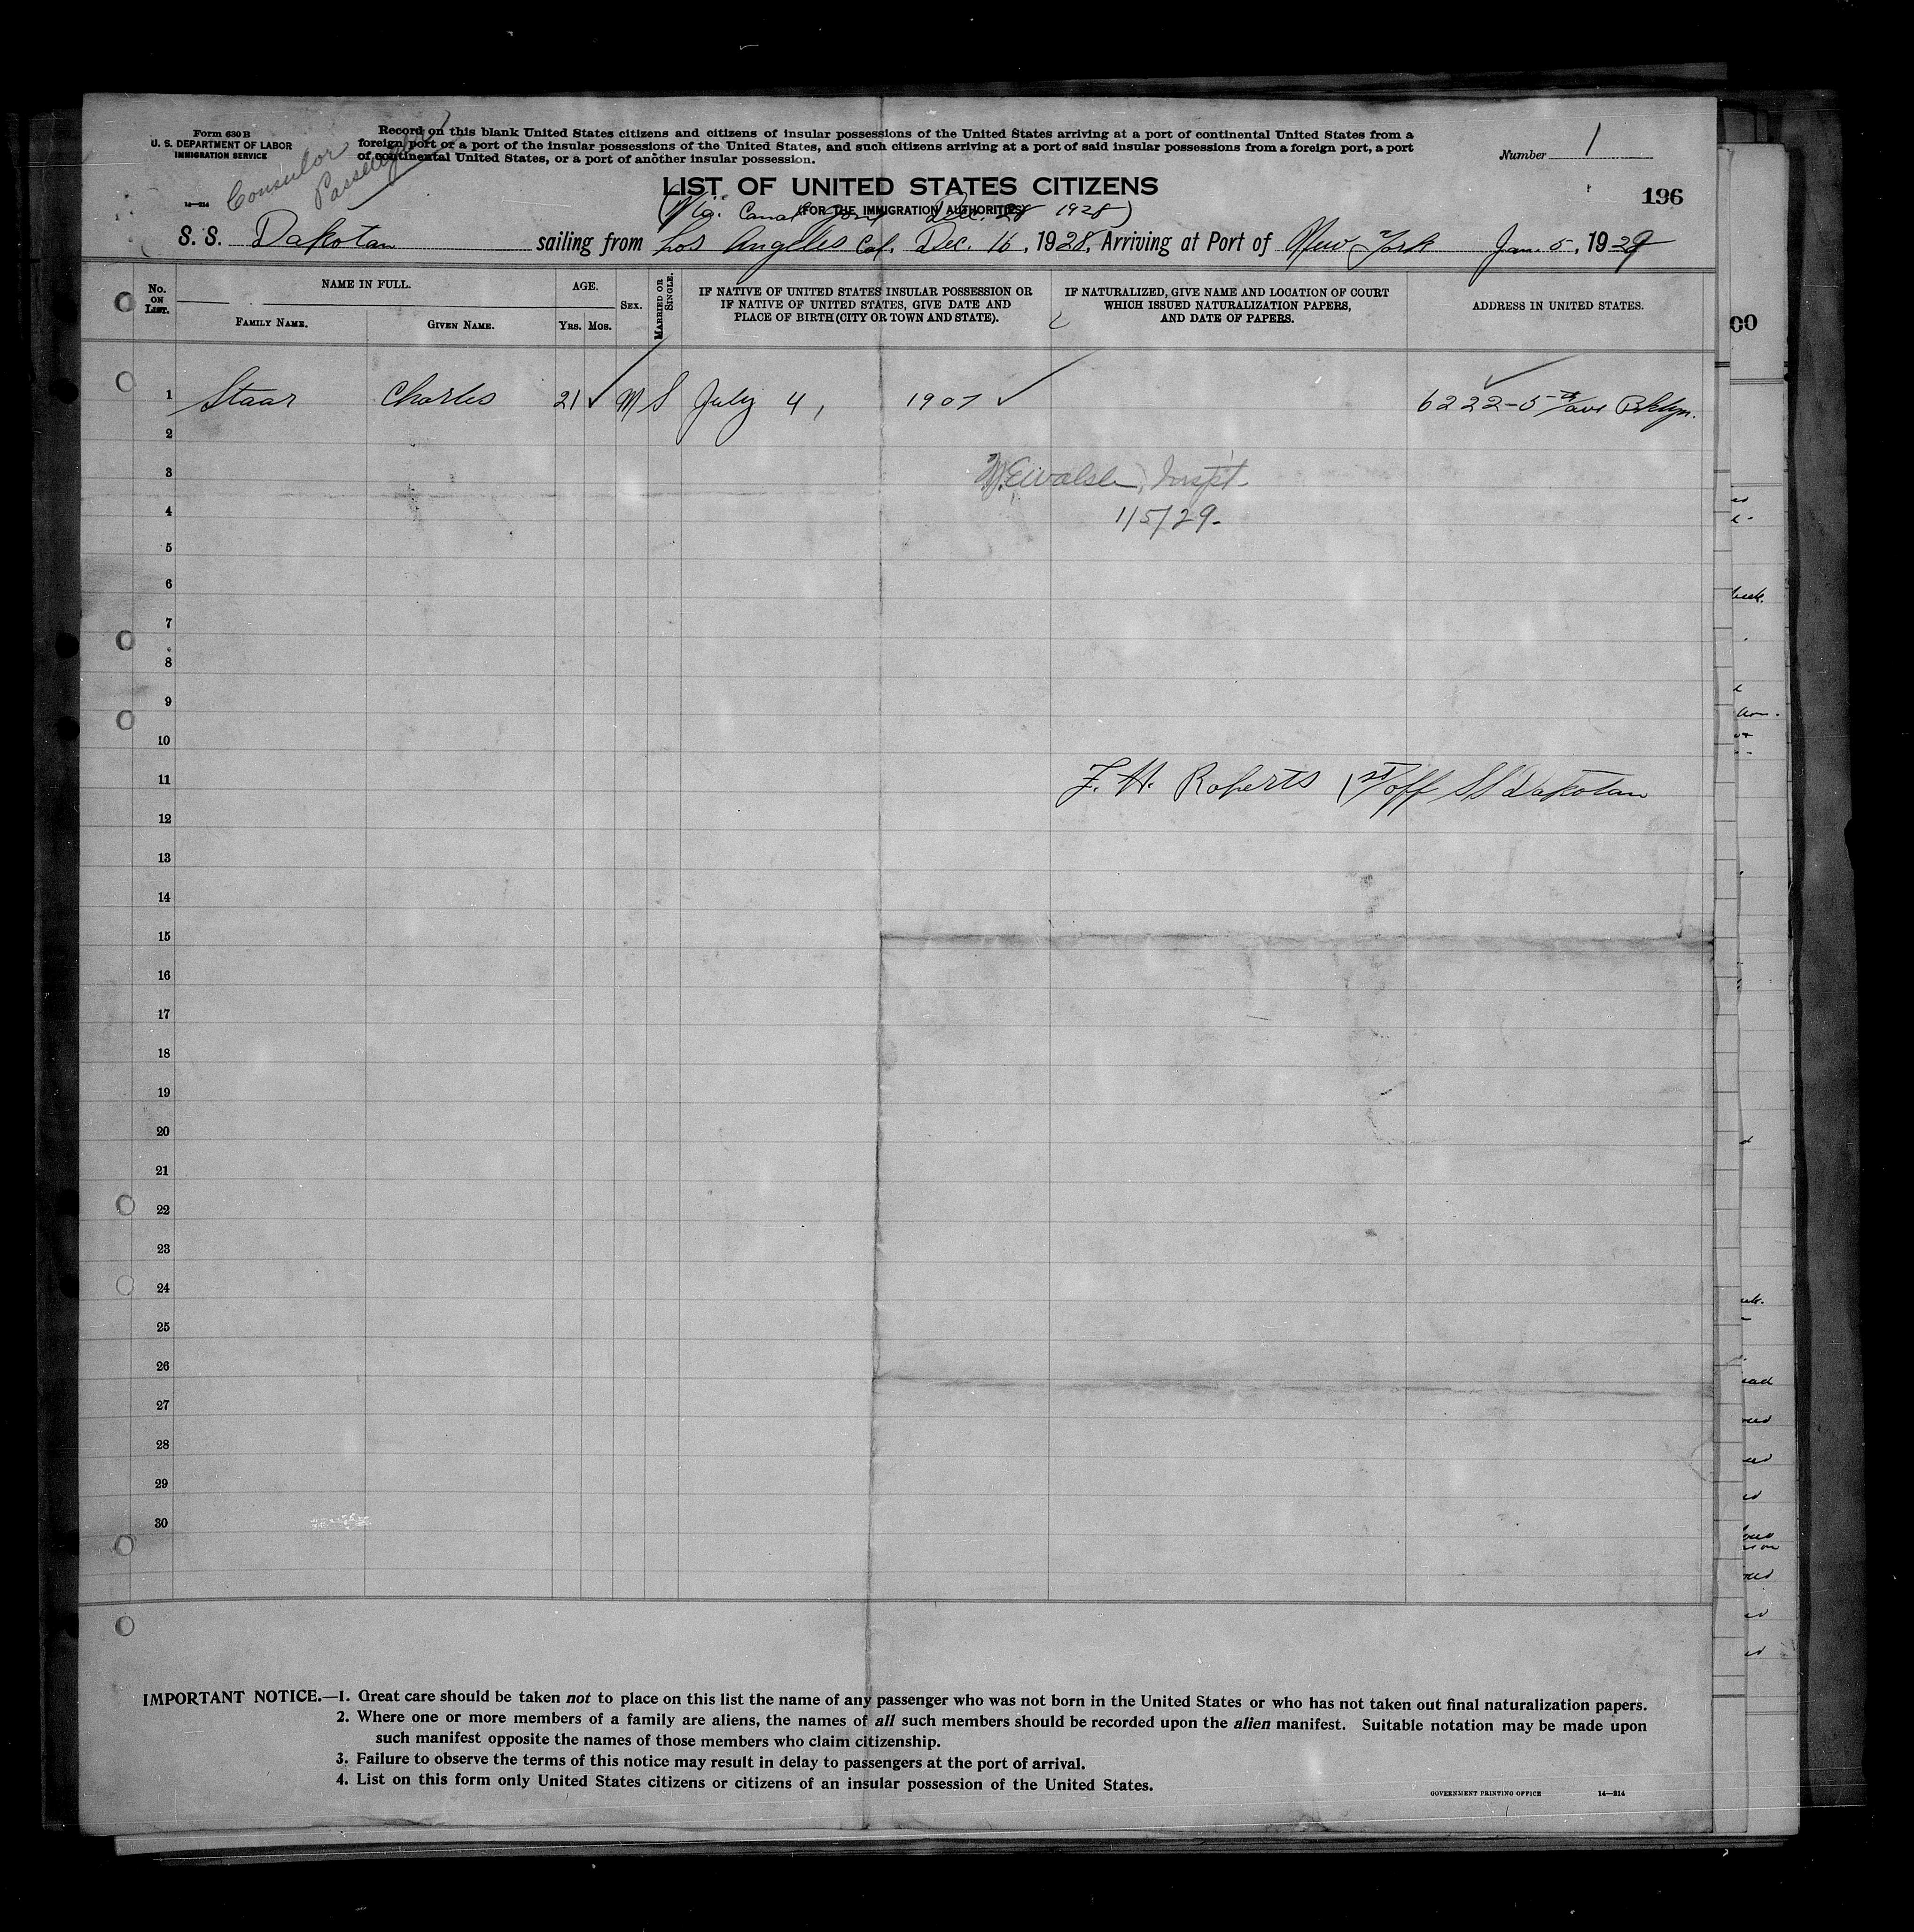 Form 630 B
U. S. DEPARTMENT OF LABOR
IMMIGRATION SERVICE
14—214
Consular
Passenger
Record on this blank United States citizens and citizens of insular possessions of the United States arriving at a port of continental United States from a
foreign port or a port of the insular possessions of the United States, and such citizens arriving at a port of said insular possessions from a foreign port, a port
of continental United States, or a port of another insular possession.
Number 1
LIST OF UNITED STATES CITIZENS
196
(FOR THE IMMIGRATION AUTHORITIES)
(Via: Canal Zone Dec. 28 1928)
S. S. Dakotan sailing from Los Angeles Cal. Dec. 16, 1928, Arriving at Port of New York Jan. 5, 1929
No. ON LIST.
NAME IN FULL.
FAMILY NAME.
GIVEN NAME.
AGE.
YRS. MOS.
SEX.
MARRIED OR SINGLE.
IF NATIVE OF UNITED STATES INSULAR POSSESSION OR
IF NATIVE OF UNITED STATES, GIVE DATE AND
PLACE OF BIRTH (CITY OR TOWN AND STATE).
IF NATURALIZED, GIVE NAME AND LOCATION OF COURT
WHICH ISSUED NATURALIZATION PAPERS,
AND DATE OF PAPERS.
ADDRESS IN UNITED STATES.
00
1 Staar Charles 21 M S July 4, 1907 6222-5th ave Bklyn.
2
3 Inspt.
4 1/5/29-
5
6
7
8
9
10
11 F. H. Roberts 1st off SS Dakotan
12
13
14
15
16
17
18
19
20
21
22
23
24
25
26
27
28
29
30
IMPORTANT NOTICE.—1. Great care should be taken not to place on this list the name of any passenger who was not born in the United States or who has not taken out final naturalization papers.
2. Where one or more members of a family are aliens, the names of all such members should be recorded upon the alien manifest. Suitable notation may be made upon
such manifest opposite the names of those members who claim citizenship.
3. Failure to observe the terms of this notice may result in delay to passengers at the port of arrival.
4. List on this form only United States citizens or citizens of an insular possession of the United States.
GOVERNMENT PRINTING OFFICE 14—214